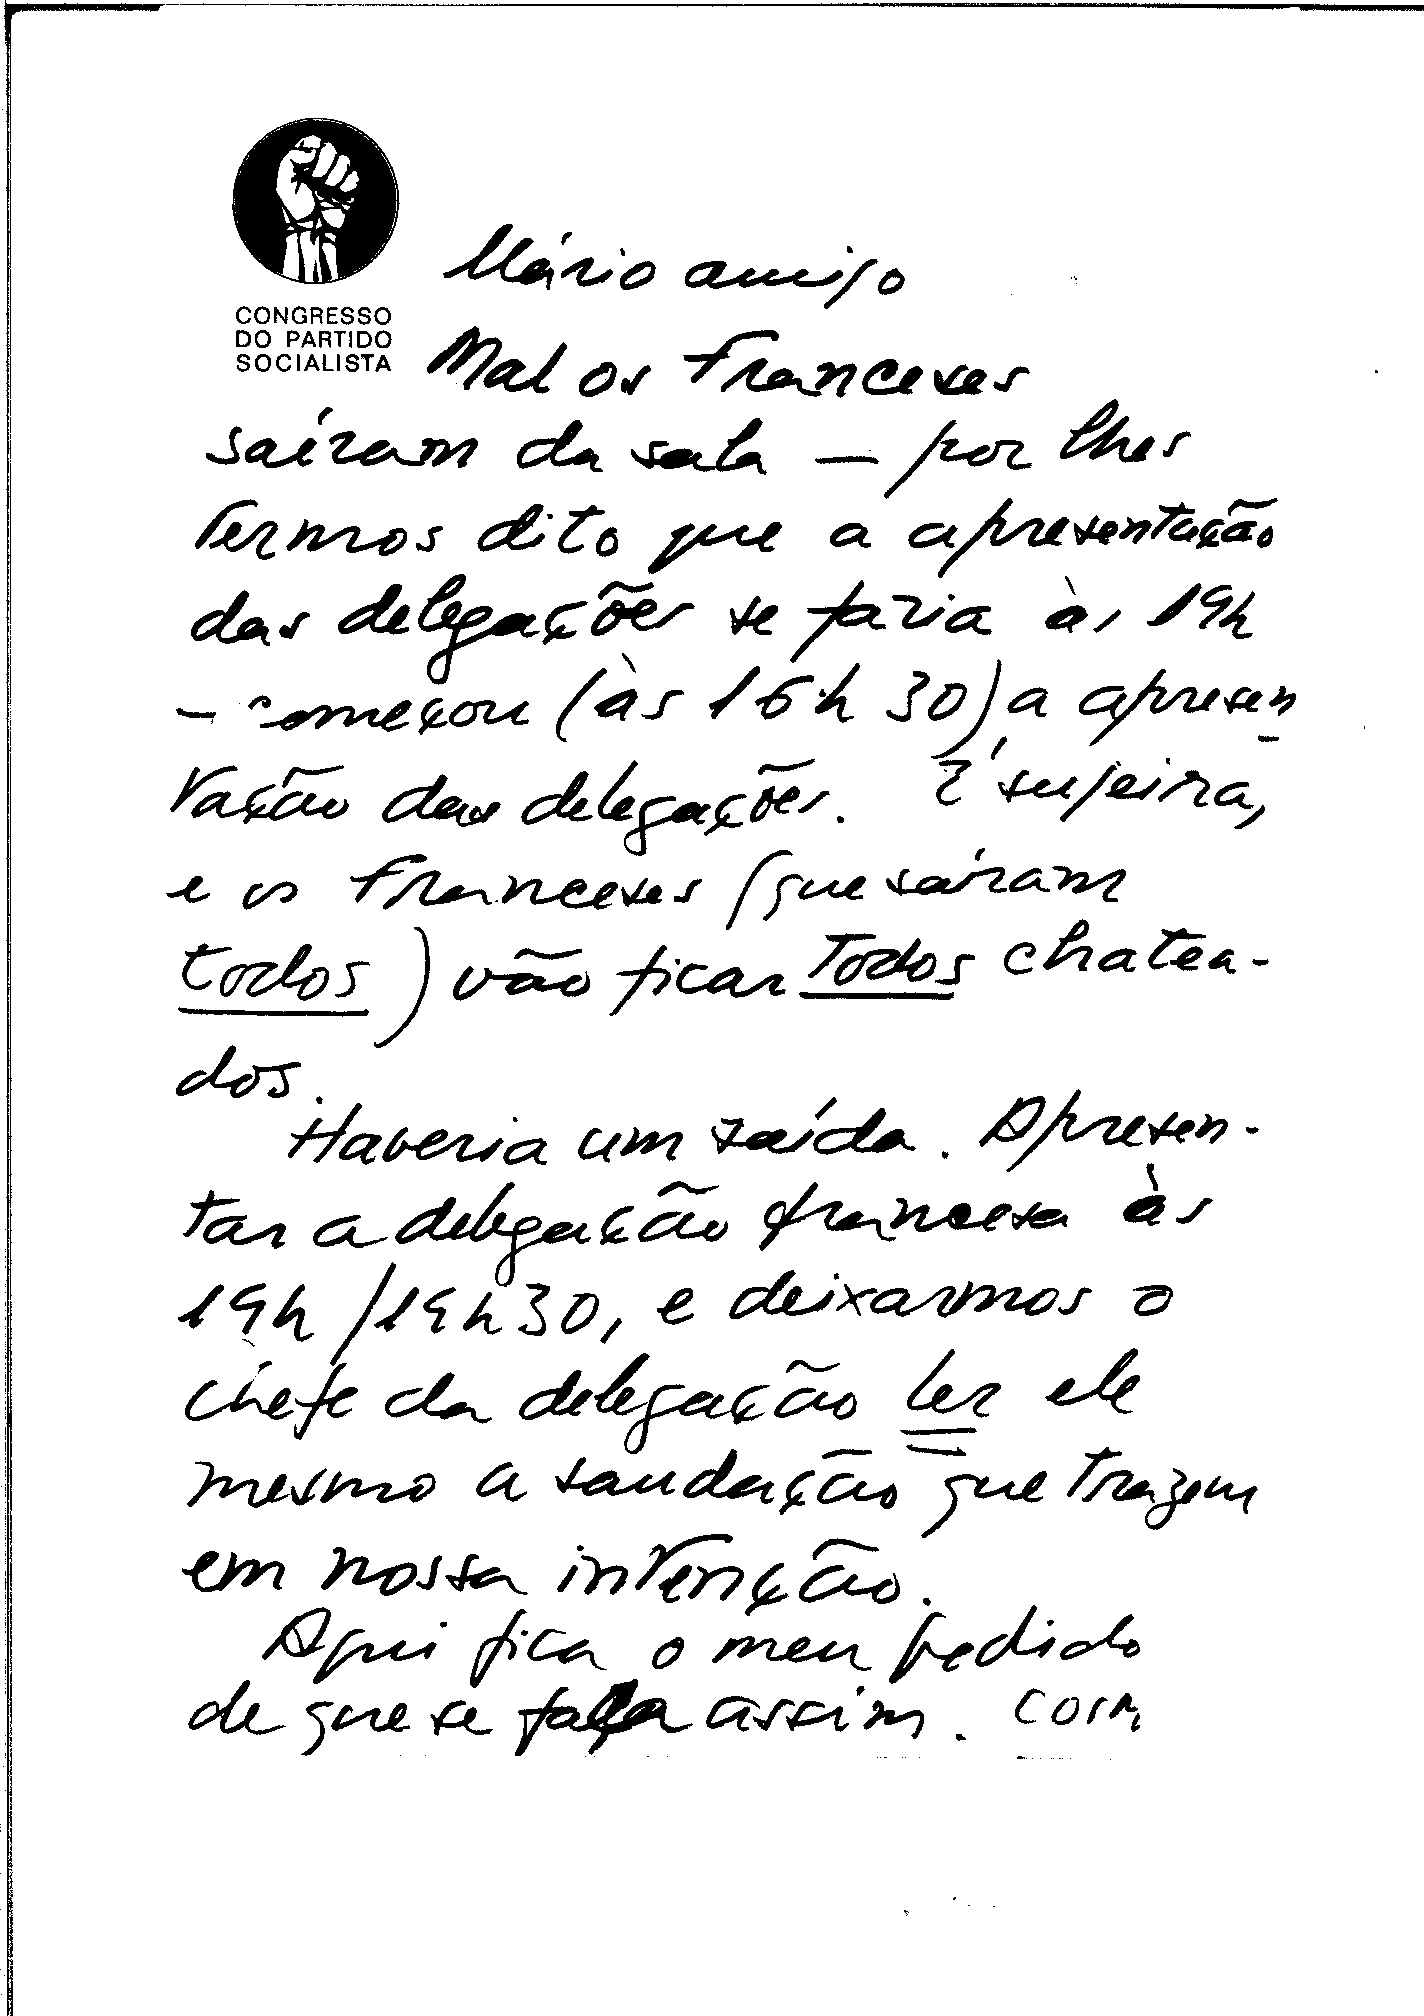 CONGRESSO
DO PARTIDO
SOCIALISTA
Mário amigo
Mal os franceses
saíram da sala — por lhes
termos dito que a apresentação
das delegações se faria às 19h
— começou (às 16h 30) a apresen
tação das delegações. É sujeira,
e os franceses (que saíram
todos) vão ficar todos chatea-
dos.
Haveria um saída. Apresen-
tar a delegação francesa às
19h/19h30, e deixarmos o
chefe da delegação ler ele
mesmo a saudação que trazem
em nossa intenção.
Aqui fica o meu pedido
de que se faça assim. com